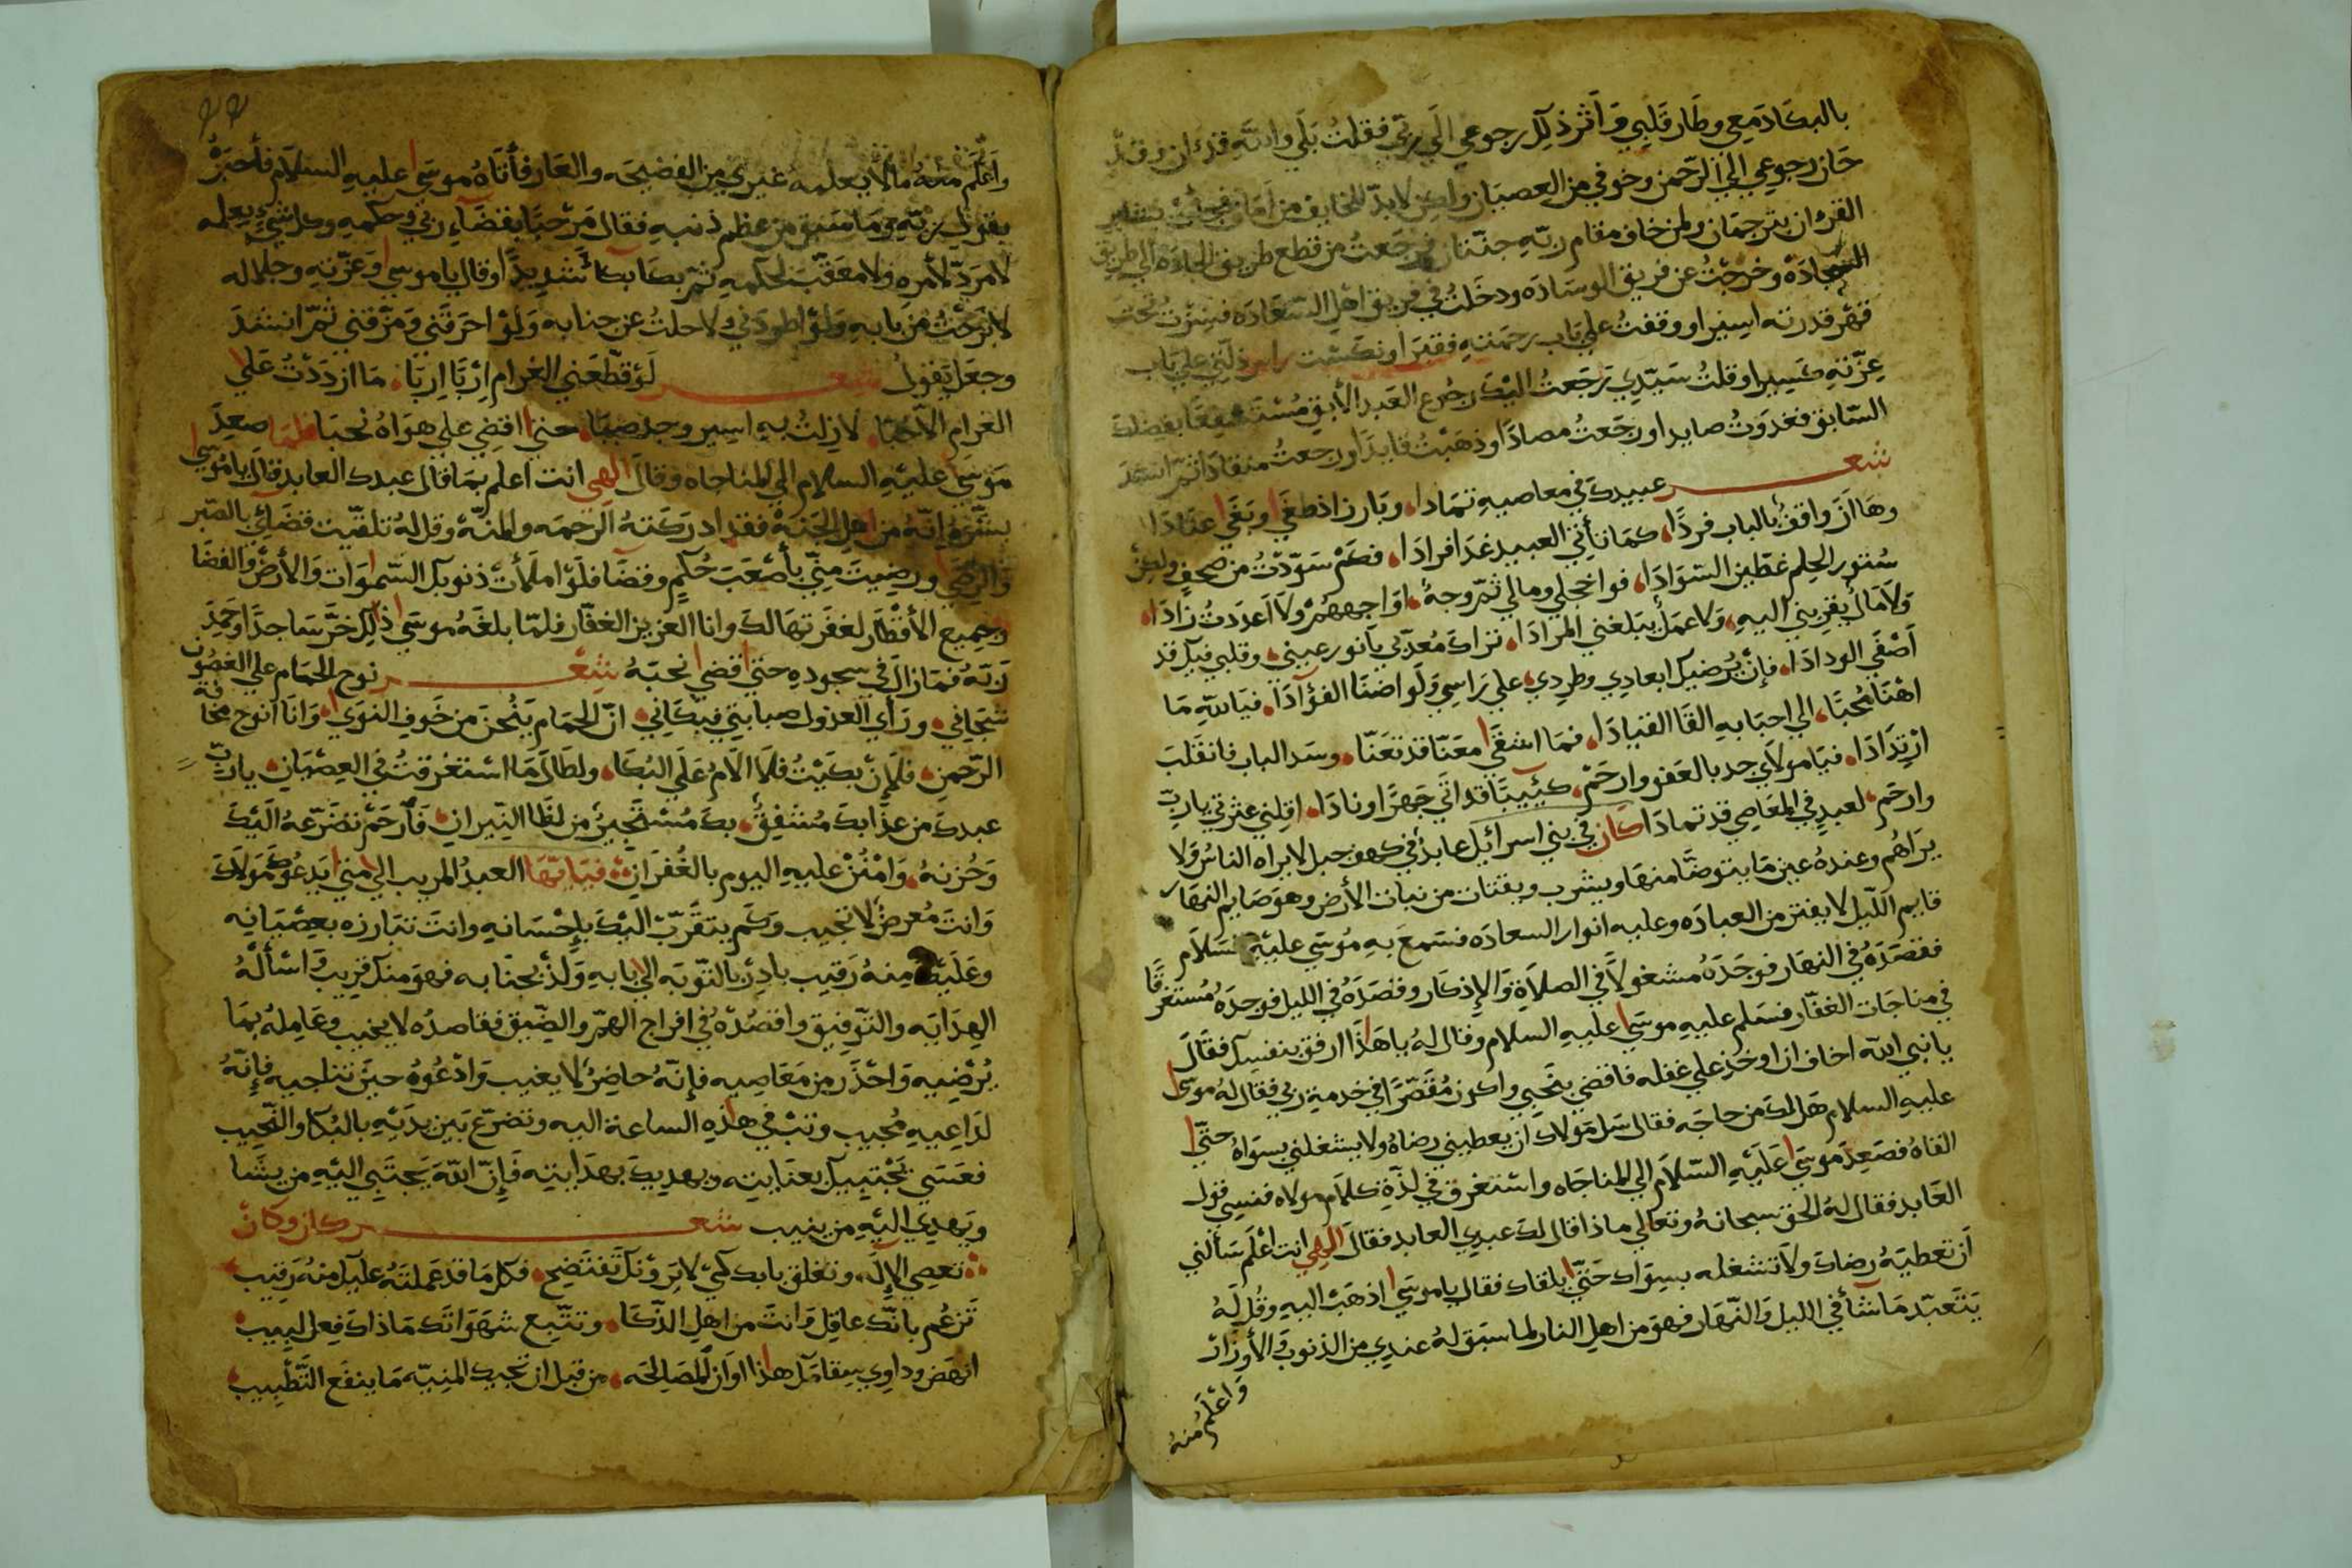 بالبكا دمعي وطار قلبي واثر ذلك رجوعي الي ربي فقلت بلي والله قد ان وقد
حان رجوعي الي الرحمن وخوفي من العصيان ولكن لا بد للخايف من امان
القرءان بترجمان ولمن خاف مقام ربه جنتان فرجعت من قطع طريق الجاده الي طريق
السجاده وخرجت عن فريق الوساده ودخلت في فريق اهل السعاده فسرت تحت
قهر قدرته اسيرا ووقفت علي باب رحمته فقيرا ونكست راس ذلتي علي باب
عزته كسيرا وقلت سيدي رجعت اليك رجوع العبد الأبق مستشفعا بفضلك
السابق فغدوت صايدا ورجعت مصادا وذهبت قايدا ورجعت منقادا ثم انشد
شعر عبيدك في معاصيه تمادا، وبارز اذ طغي وبغي عنادا
وها ان واقف بالباب فردا، كما تأتي العبيد غدا فرادا، فكم سودت من صحف ولكن
ستور الحلم غطين السوادا، فواخجلي ومالي ثم وجه، اواجههم ولا اعددت زادا،
ولا مال يقربني اليه، ولا عمل يبلغني المرادا، تراك معذبي يا نور عيني، وقلبي فيك قد
أصفي الودادا، فإن يرضيك ابعادي وطردي، علي راسي ولو اضنا الفؤادا، فيالله ما
اهنا محبا، الي احبابه القا القيادا، فما اشقي معنا قد تعنا، وسد الباب فانقلب
ارتدادا، فيا مولاي جد بالعفو وارحم، كئيبا قد اتي جهرا ونادا، اقلني عثرتي يا رب
وارحم، لعبد في المعاصي قد تمادا كان في بني اسرائيل عابد في كهف جبل لا يراه الناس ولا
يراهم وعنده عين ما يتوضا منها ويشرب ويقتات من نبات الأرض وهو صايم النهار
قايم الليل لا يفتر من العباده وعليه انوار السعاده فسمع به موسي عليه السلام
فقصده في النهار فوجده مشغولا في الصلاة والإذكار وقصده في الليل فوجده مستغرقا
في مناجات الغفار فسلم عليه موسي عليه السلام وقال له يا هذا ارفق بنفسك فقال
يا نبي الله اخاف ان اوخذ علي غفله فاقضي بنحبي واكون مقصرا في خدمة ربي فقال له موسي
عليه السلام هل لك من حاجه فقال سل مولاك أن يعطيني رضاه ولا يشغلني بسواه حتي
القاه فصعد موسي عليه السلام الي المناجاه واستغرق في لذة كلام مولاه فنسي قول
العابد فقال له الحق سبحانه وتعالي ماذا قال لك عبدي العابد فقال الهي انت اعلم سألني
أن تعطيه رضاك ولا تشغله بسواك حتي يلقاك فقال يا موسي اذهب اليه وقل له
يتعبد ما شأ في الليل والنهار فهو من اهل النار لما سبق له عندي من الذنوب والأوزار
واعلم منه
واعلم منه ما لا يعلمه غيري من الفضيحه والعار فأتاه موسي عليه السلام فأخبره
بقول ربه وما سبق من عظم ذنبه فقال مرحبا بقضاء ربي وحكمه وكل شيء يعلمه
لا مرد لأمره ولا معقب لحكمه ثم بكا بكاء شديدا وقال يا موسي وعزته وجلاله
لا برحت من بابه ولو اطردني ولا حلت عن جنابه ولو احرقني ومزقني ثم انشد
وجعل يقول شعر لو قطعني الغرام إربا إربا، ما ازددت علي
الغرام الا حبا، لا زلت به اسير وجد صبا، حتي اقضي علي هواه نحبا فلما صعد
موسي عليه السلام الي المناجاه وقال الهي انت اعلم بما قال عبدك العابد قال يا موسي
بشره انه من اهل الجنة فقد ادركته الرحمه والمنه وقل له تلقيت قضائي بالصبر
والرضي ورضيت مني بأصعب حكم وقضا فلو املأت ذنوبك السموات والأرض والفضا
وجميع الأقطار لغفرتها لك وانا العزيز الغفار فلما بلغه موسي ذلك خر ساجدا وحمد
ربه فما زال في سجوده حتي قضي نحبه شعر نوح الحمام علي الغصون
شجاني، ورأي العذول صبابتي فبكاني، ان الحمام ينحن من خوف النوي، وانا انوح مخافة
الرحمن، فلإن بكيت فلا الام علي البكا، ولطال ما استغرقت في العصيان، يا رب
عبدك من عذابك مشفق، بك مستجير من لظا النيران، فارحم تضرعه اليك
وحزنه، وامنن عليه اليوم بالغفران، فيا ايها العبد المريب الي متي يدعوك مولاك
وانت معرض لا تجيب وكم يتقرب اليك بإحسانه وانت تبارزه بعصيانه
وعليك منه رقيب بادر بالتوبه الي بابه ولذ بجنابه فهو منك قريب واسأله
الهدايه والتوفيق واقصده في افراج الهم والضيق فقاصده لا يخيب وعامله بما
يرضيه واحذر من معاصيه فإنه حاضر لا يغيب وادعوه حين تناجيه فإنه
لداعيه مجيب وتب في هذه الساعة اليه وتضرع بين يديه بالبكا والنحيب
فعسي يجتبيك بعنايته ويهديك بهدايته فإن الله يجتبي اليه من يشا
ويهدي اليه من ينيب شعر كان وكان
تعصي الإله، وتغلق بابك كي لا يروك تفتضح، فكل ما قد عملته عليك منه رقيب
تزعم بانك عاقل وانت من اهل الذكا، وتتبع شهواتك ما ذاك فعل لبيب
انهض وداوي سقامك هذا اوان المصالحه، من قبل ان تجيك المنيه ما ينفع التطبيب